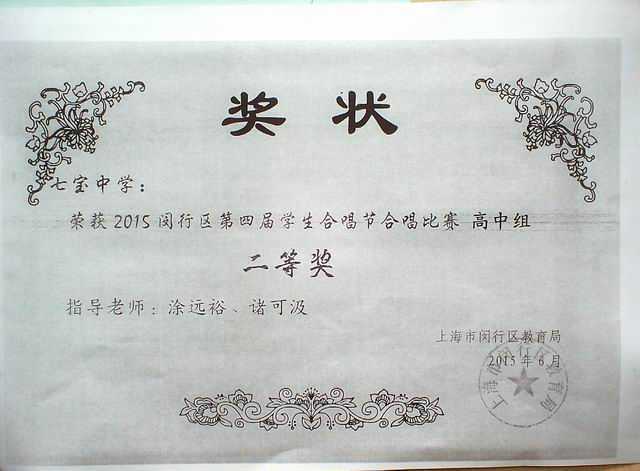 奖状
七宝中学：
荣获2015闵行区第四届学生合唱节合唱比赛 高中组
二等奖
指导老师：涂远裕、诸可汲
上海市闵行区教育局
2015年6月
上海市闵行区教育局